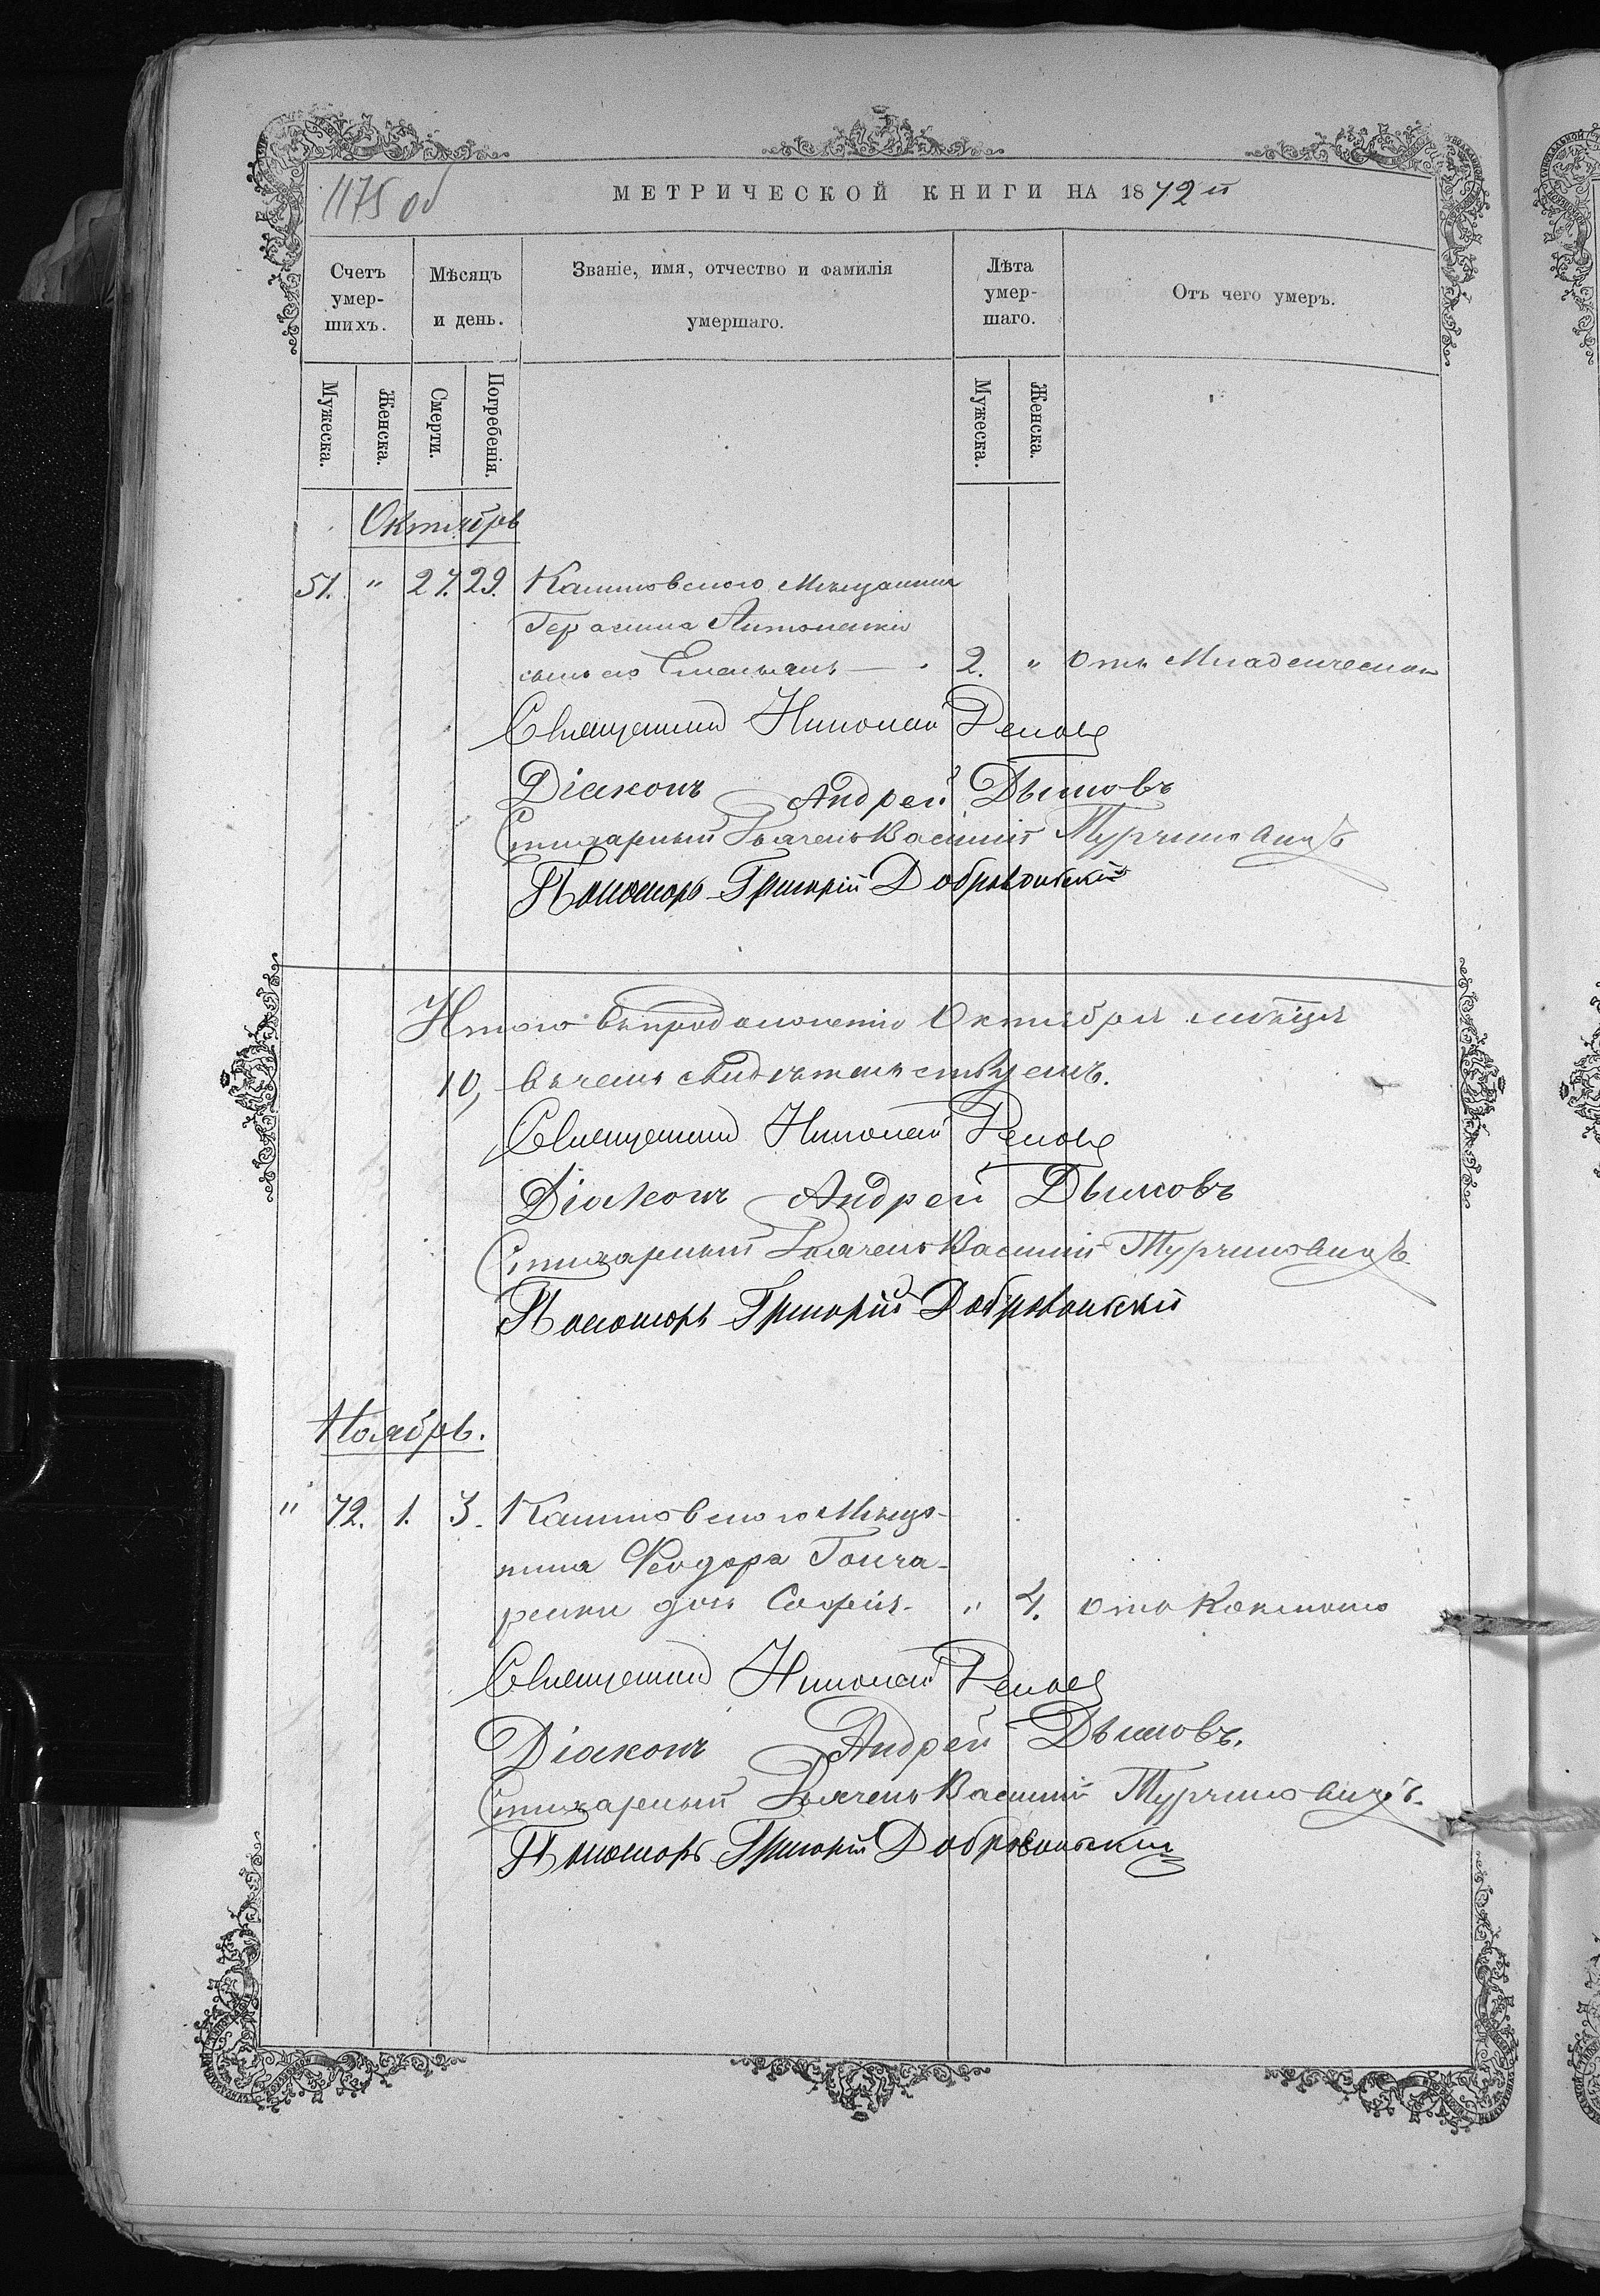 1175 об
МЕТРИЧЕСКОЙ КНИГИ НА 1872 й
Счетъ умер-шихъ.
Мѣсяцъ и день.
Званіе, имя, отчество и фамилія умершаго.
Лѣта умер-шаго.
Отъ чего умеръ.
Мужеска.
Женска.
Смерти.
Погребенія.
Мужеска.
Женска.
Октябрь
51. " 27. 29. Мѣщанина
Герасима Антоненки
сынъ его Емельянъ — 2. " Отъ Младенческой
Священникъ Николай
Діаконъ Андрей Дымовъ
Стихарный Дьячекъ Василій Турчиновичъ
Пономарь Григорій Добровольскій
Итого въ продолженіи Октября мѣсяца
10, въ чемъ свидѣтельствуемъ.
Священникъ Николай
Діаконъ Андрей Дымовъ
Стихарный Дьячекъ Василій Турчиновичъ.
Пономарь Григорій Добровольскій
Ноябрь.
" 72. 1. 3. Мѣща-
нина Ѳеодора Гонча-
ренки дочь Софія. " 4. отъ Коклюша
Священникъ Николай
Діаконъ Андрей Дымовъ.
Стихарный Дьячекъ Василій Турчиновичъ.
Пономарь Григорій Добровольскій